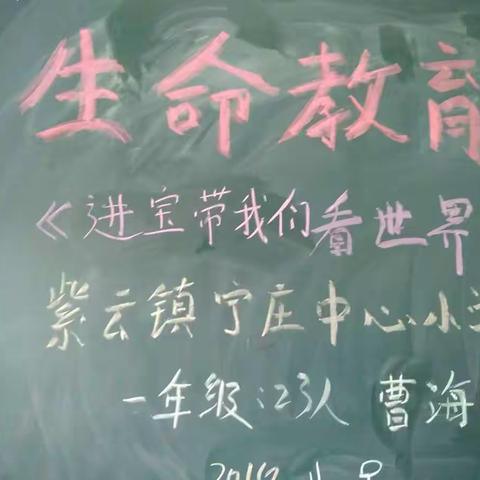 生命教育
《进宝带我们看世界
紫云镇宁庄中心小学
一年级:23人 曹海